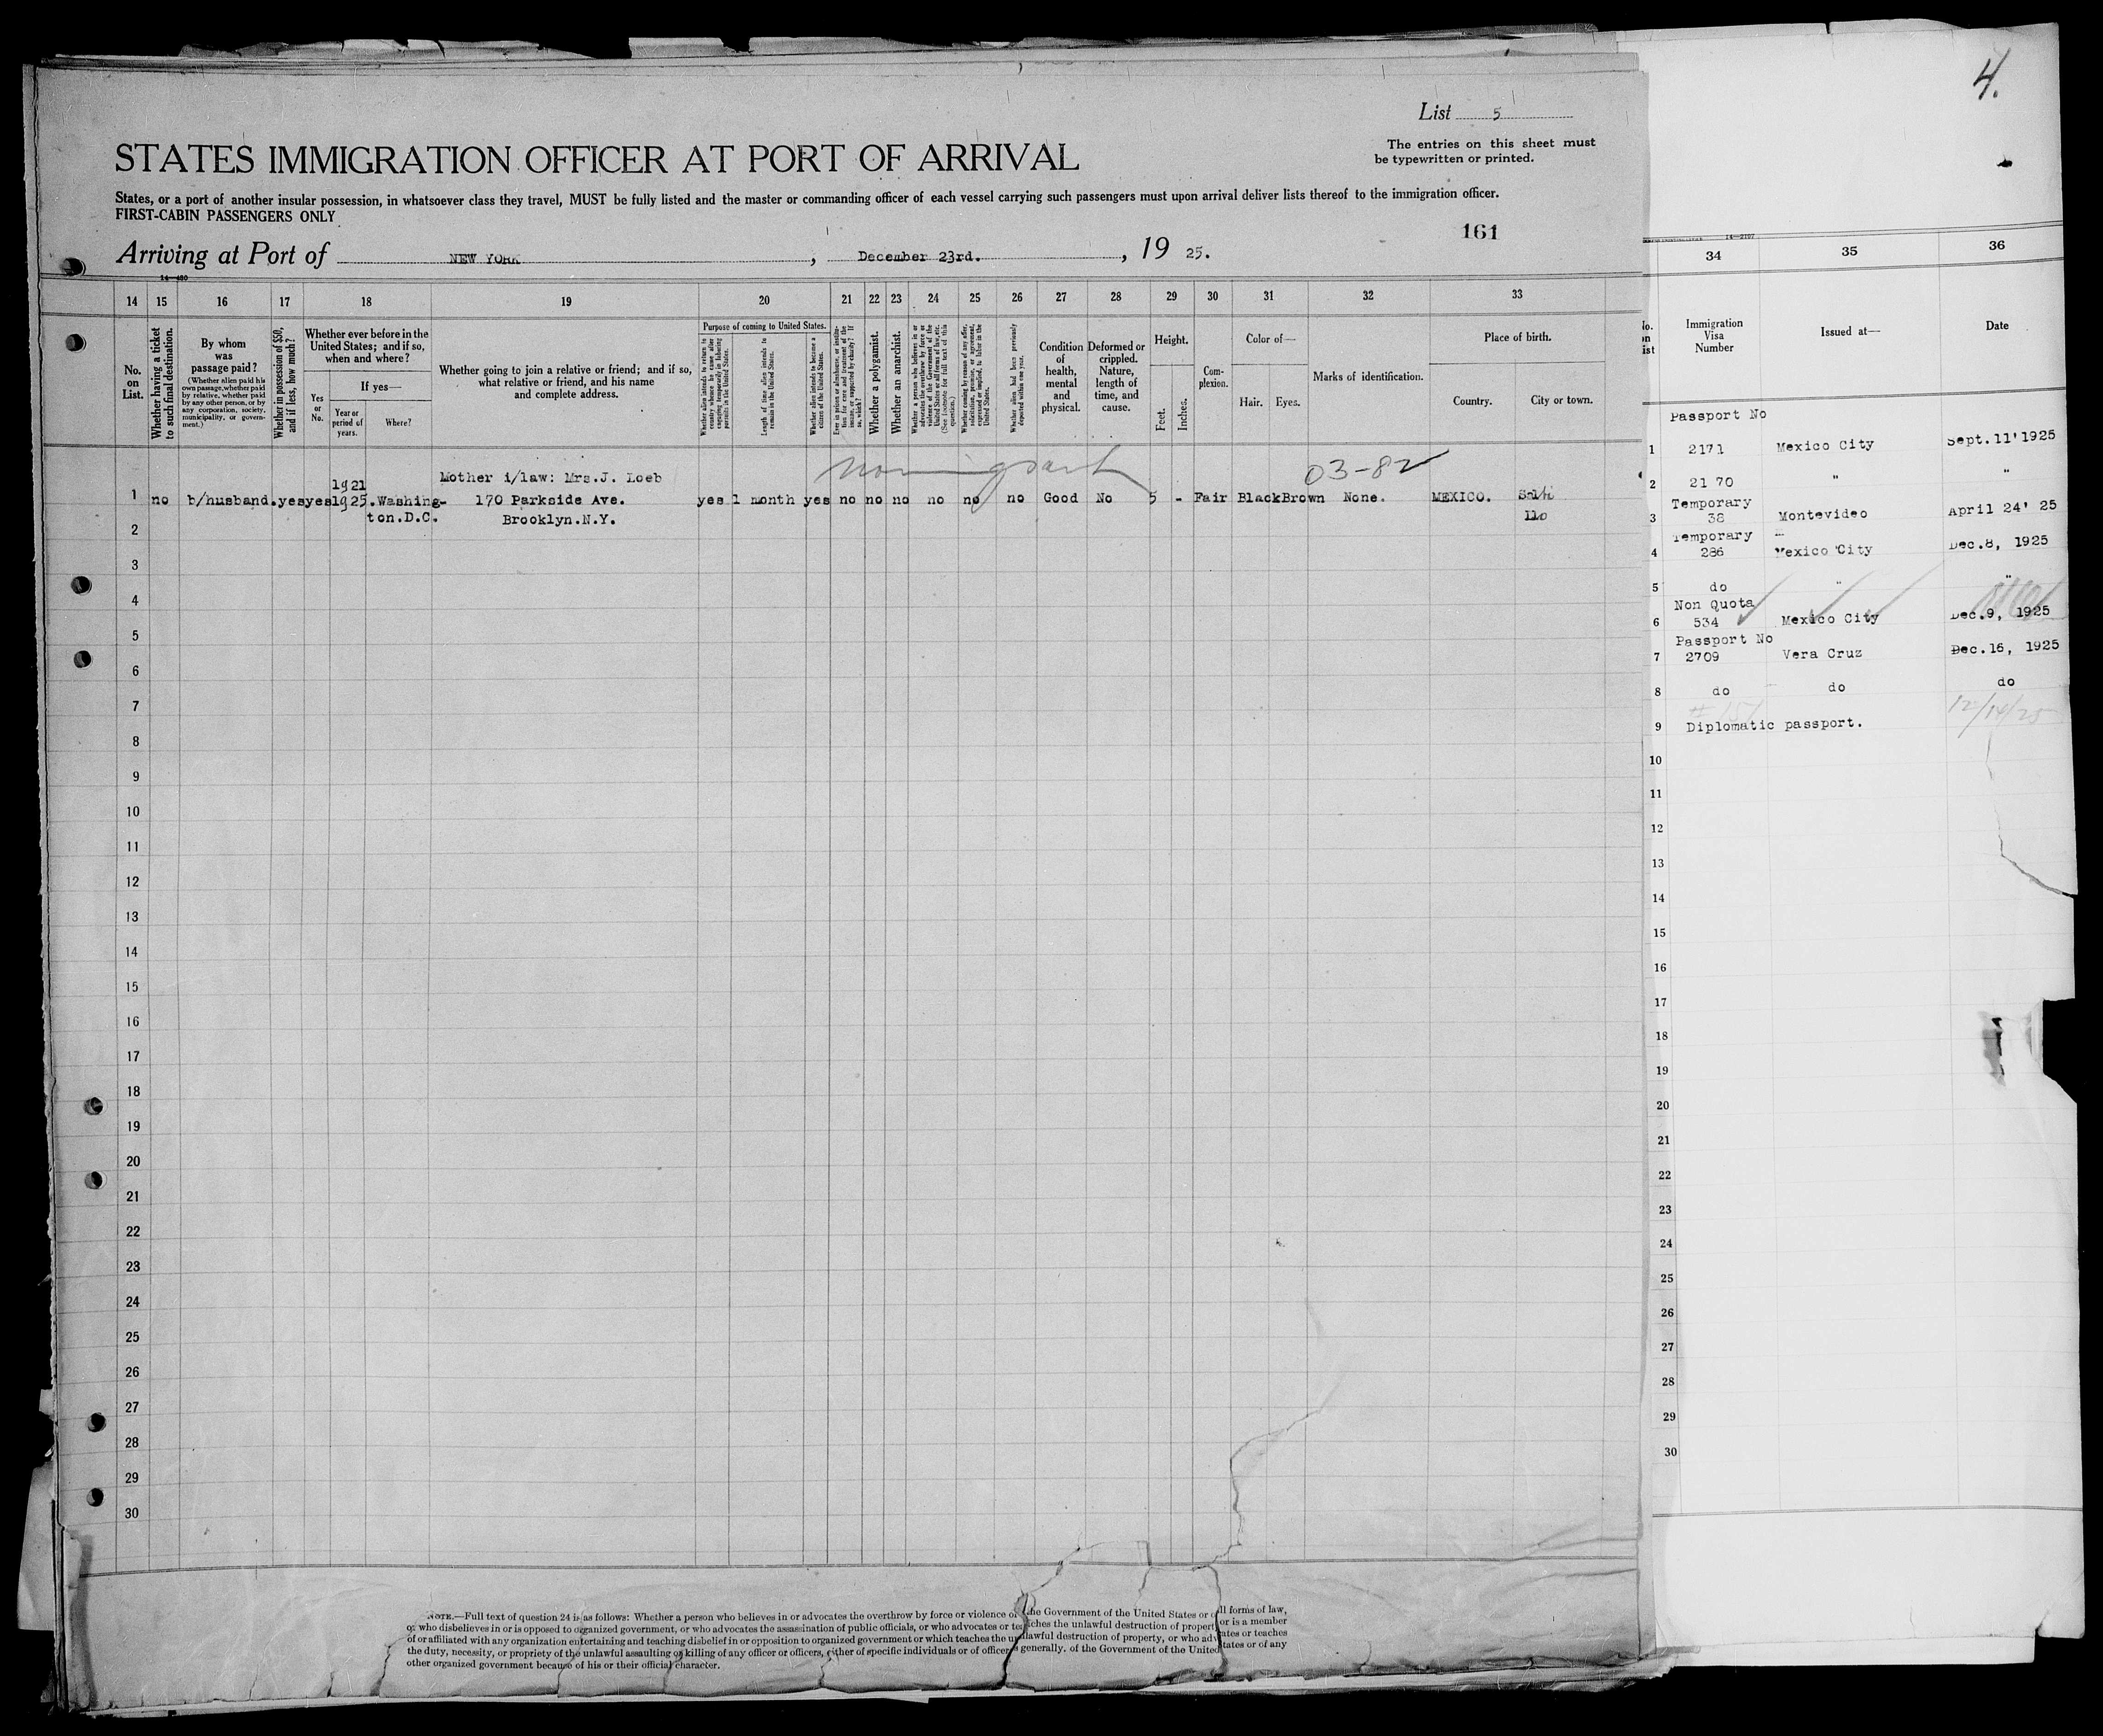 4.
List 5
The entries on this sheet must
be typewritten or printed.
STATES IMMIGRATION OFFICER AT PORT OF ARRIVAL
States, or a port of another insular possession, in whatsoever class they travel, MUST be fully listed and the master or commanding officer of each vessel carrying such passengers must upon arrival deliver lists thereof to the immigration officer.
FIRST-CABIN PASSENGERS ONLY
161
Arriving at Port of NEW YORK, December 23rd., 19 25.
14—480
14 15 16 17 18 19 20 21 22 23 24 25 26 27 28 29 30 31 32 33
No. on List.
Whether having a ticket to such final destination.
By whom was passage paid?
(Whether alien paid his own passage, whether paid by relative, whether paid by any other person, or by any corporation, society, municipality, or government.)
Whether in possession of $50, and if less, how much?
Whether ever before in the United States; and if so, when and where?
Yes or No.
If yes—
Year or period of years.
Where?
Whether going to join a relative or friend; and if so, what relative or friend, and his name and complete address.
Purpose of coming to United States.
Whether alien intends to return to country whence he came after engaging temporarily in laboring pursuits in the United States.
Length of time alien intends to remain in the United States.
Whether alien intends to become a citizen of the United States.
Ever in prison or almshouse, or institution for care and treatment of the insane, or supported by charity? If so, which?
Whether a polygamist.
Whether an anarchist.
Whether coming by reason of any offer, solicitation, promise, or agreement, expressed or implied, to labor in the United States.
Whether alien had been previously deported within one year.
Condition of health, mental and physical.
Deformed or crippled. Nature, length of time, and cause.
Height.
Feet. Inches.
Complexion.
Color of—
Hair. Eyes.
Marks of identification.
Place of birth.
Country. City or town.
03-82
1921
Mother i/law: Mrs.J. Loeb
1 no b/husband.yes yes 1925.Washing- 170 Parkside Ave. yes 1 month yes no no no no no no Good No 5 - Fair Black Brown None. MEXICO. Salti
ton.D.C. Brooklyn.N.Y. llo
2
3
4
5
6
7
8
9
10
11
12
13
14
15
16
17
18
19
20
21
22
23
24
25
26
27
28
29
30
NOTE.—Full text of question 24 is as follows: Whether a person who believes in or advocates the overthrow by force or violence of the Government of the United States or all forms of law,
or who disbelieves in or is opposed to organized government, or who advocates the assassination of public officials, or who advocates or teaches the unlawful destruction of property or is a member
of or affiliated with any organization entertaining and teaching disbelief in or opposition to organized government or which teaches the unlawful destruction of property, or who advocates or teaches
the duty, necessity, or propriety of the unlawful assaulting or killing of any officer or officers, either of specific individuals or of officers generally, of the Government of the United States or of any
other organized government because of his or their official character.
34 35 36
Immigration Visa Number
Issued at—
Date
Passport No
1 2171 Mexico City Sept.11'1925
2 2170 " "
Temporary
3 38 Montevideo April 24' 25
Temporary
4 286 Mexico City Dec.8, 1925
5 do " "
Non Quota
6 534 Mexico City Dec.9, 1925
Passport No
7 2709 Vera Cruz Dec.16, 1925
8 do do do
9 Diplomatic passport. 12/14/25
10
11
12
13
14
15
16
17
18
19
20
21
22
23
24
25
26
27
28
29
30